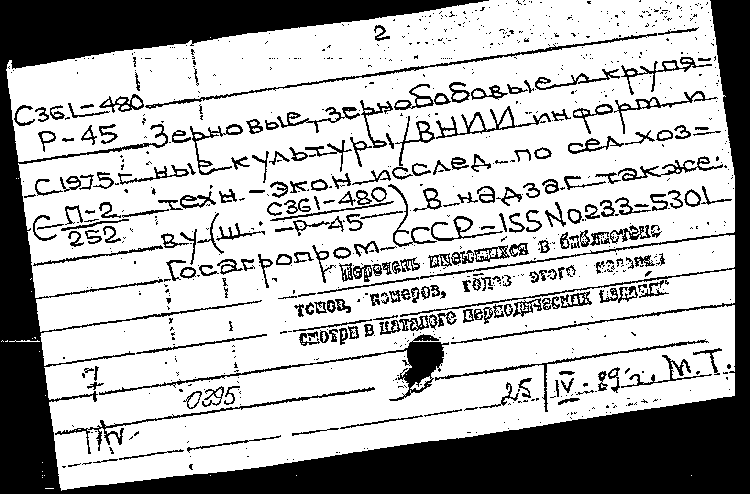 2
С361-480
Р-45 Зерновые, зернобобовые и крупя=
С1975- ные культуры/ВНИИ информ. и
Є П-2/252 техн.-экон. исслед. по сел. хоз=
ву (ш. С361-480/Р-45) В надзаг. также:
Госагропром СССР=ISSN0233-5301
Перечень имеющихся в библиотеке
томов, номеров, годов этого издания
смотри в каталоге периодических изданий
7
0295 25 IV-89г. М.Т.